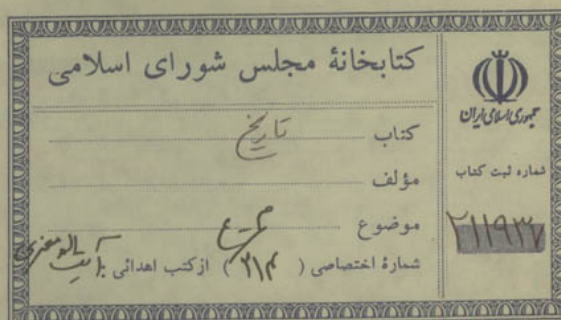 کتابخانهٔ مجلس شورای اسلامی
کتاب تاریخ
مؤلف
موضوع
شمارهٔ اختصاصی ( ۳۱۴ ) از کتب اهدائی :
جمهوری اسلامی ایران
شماره ثبت کتاب
۲۱۱۹۳۷